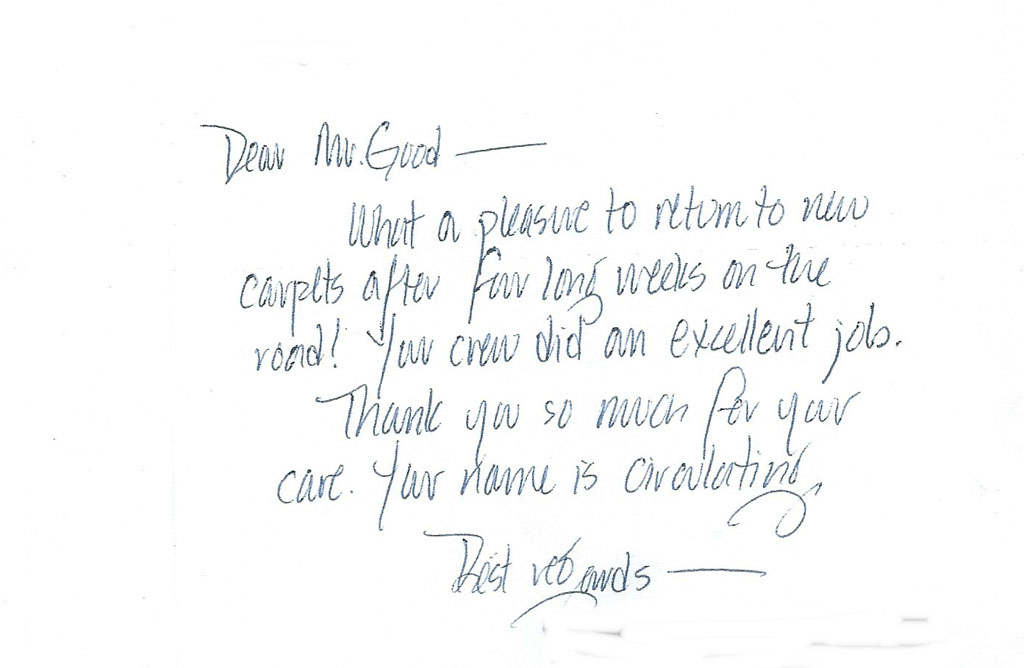 Dear Mr. Good —
What a pleasure to return to new
carpets after four long weeks on the
road! Your crew did an excellent job.
Thank you so much for your
care. Your name is circulating
Best regards —